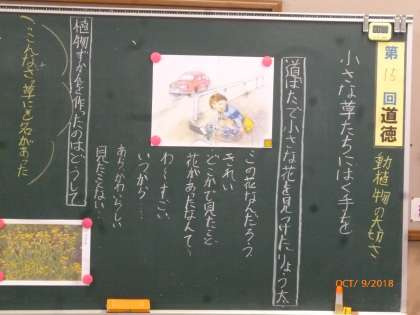 第15回道徳
動植物の大切さ
小さな草たちにはく手を
道ばたで小さな花を見つけたりょう太
この花なんだろう
きれい
どこかで見たこと
花があったなんて〜
わ〜すごい
いつから…
あら、かわいらしい
見たことない…
植物ずかんを作ったのはどうして
こんな草にも名があった
OCT/ 9/2018